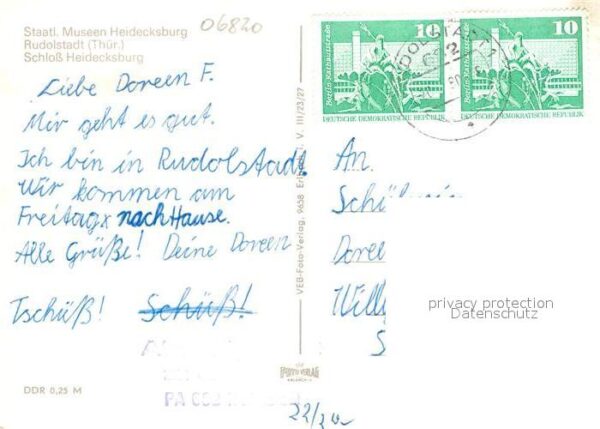 Staatl. Museen Heidecksburg
Rudolstadt (Thür.)
Schloß Heidecksburg
06820
Liebe Doreen F.
Mir geht es gut.
Ich bin in Rudolstadt!
Wir kommen am
Freitag nach Hause.
Alle Grüße! Deine Doreen
Tschüß! Schüß!
DDR 0,25 M
VEB-Foto-Verlag, 9658 V III/23/27
FOTO VERLAG
10
Berlin, Rathausstraße
DEUTSCHE DEMOKRATISCHE REPUBLIK
10
Berlin, Rathausstraße
DEUTSCHE DEMOKRATISCHE REPUBLIK
An
Schülerin
Doree
Willy
S
privacy protection
Datenschutz